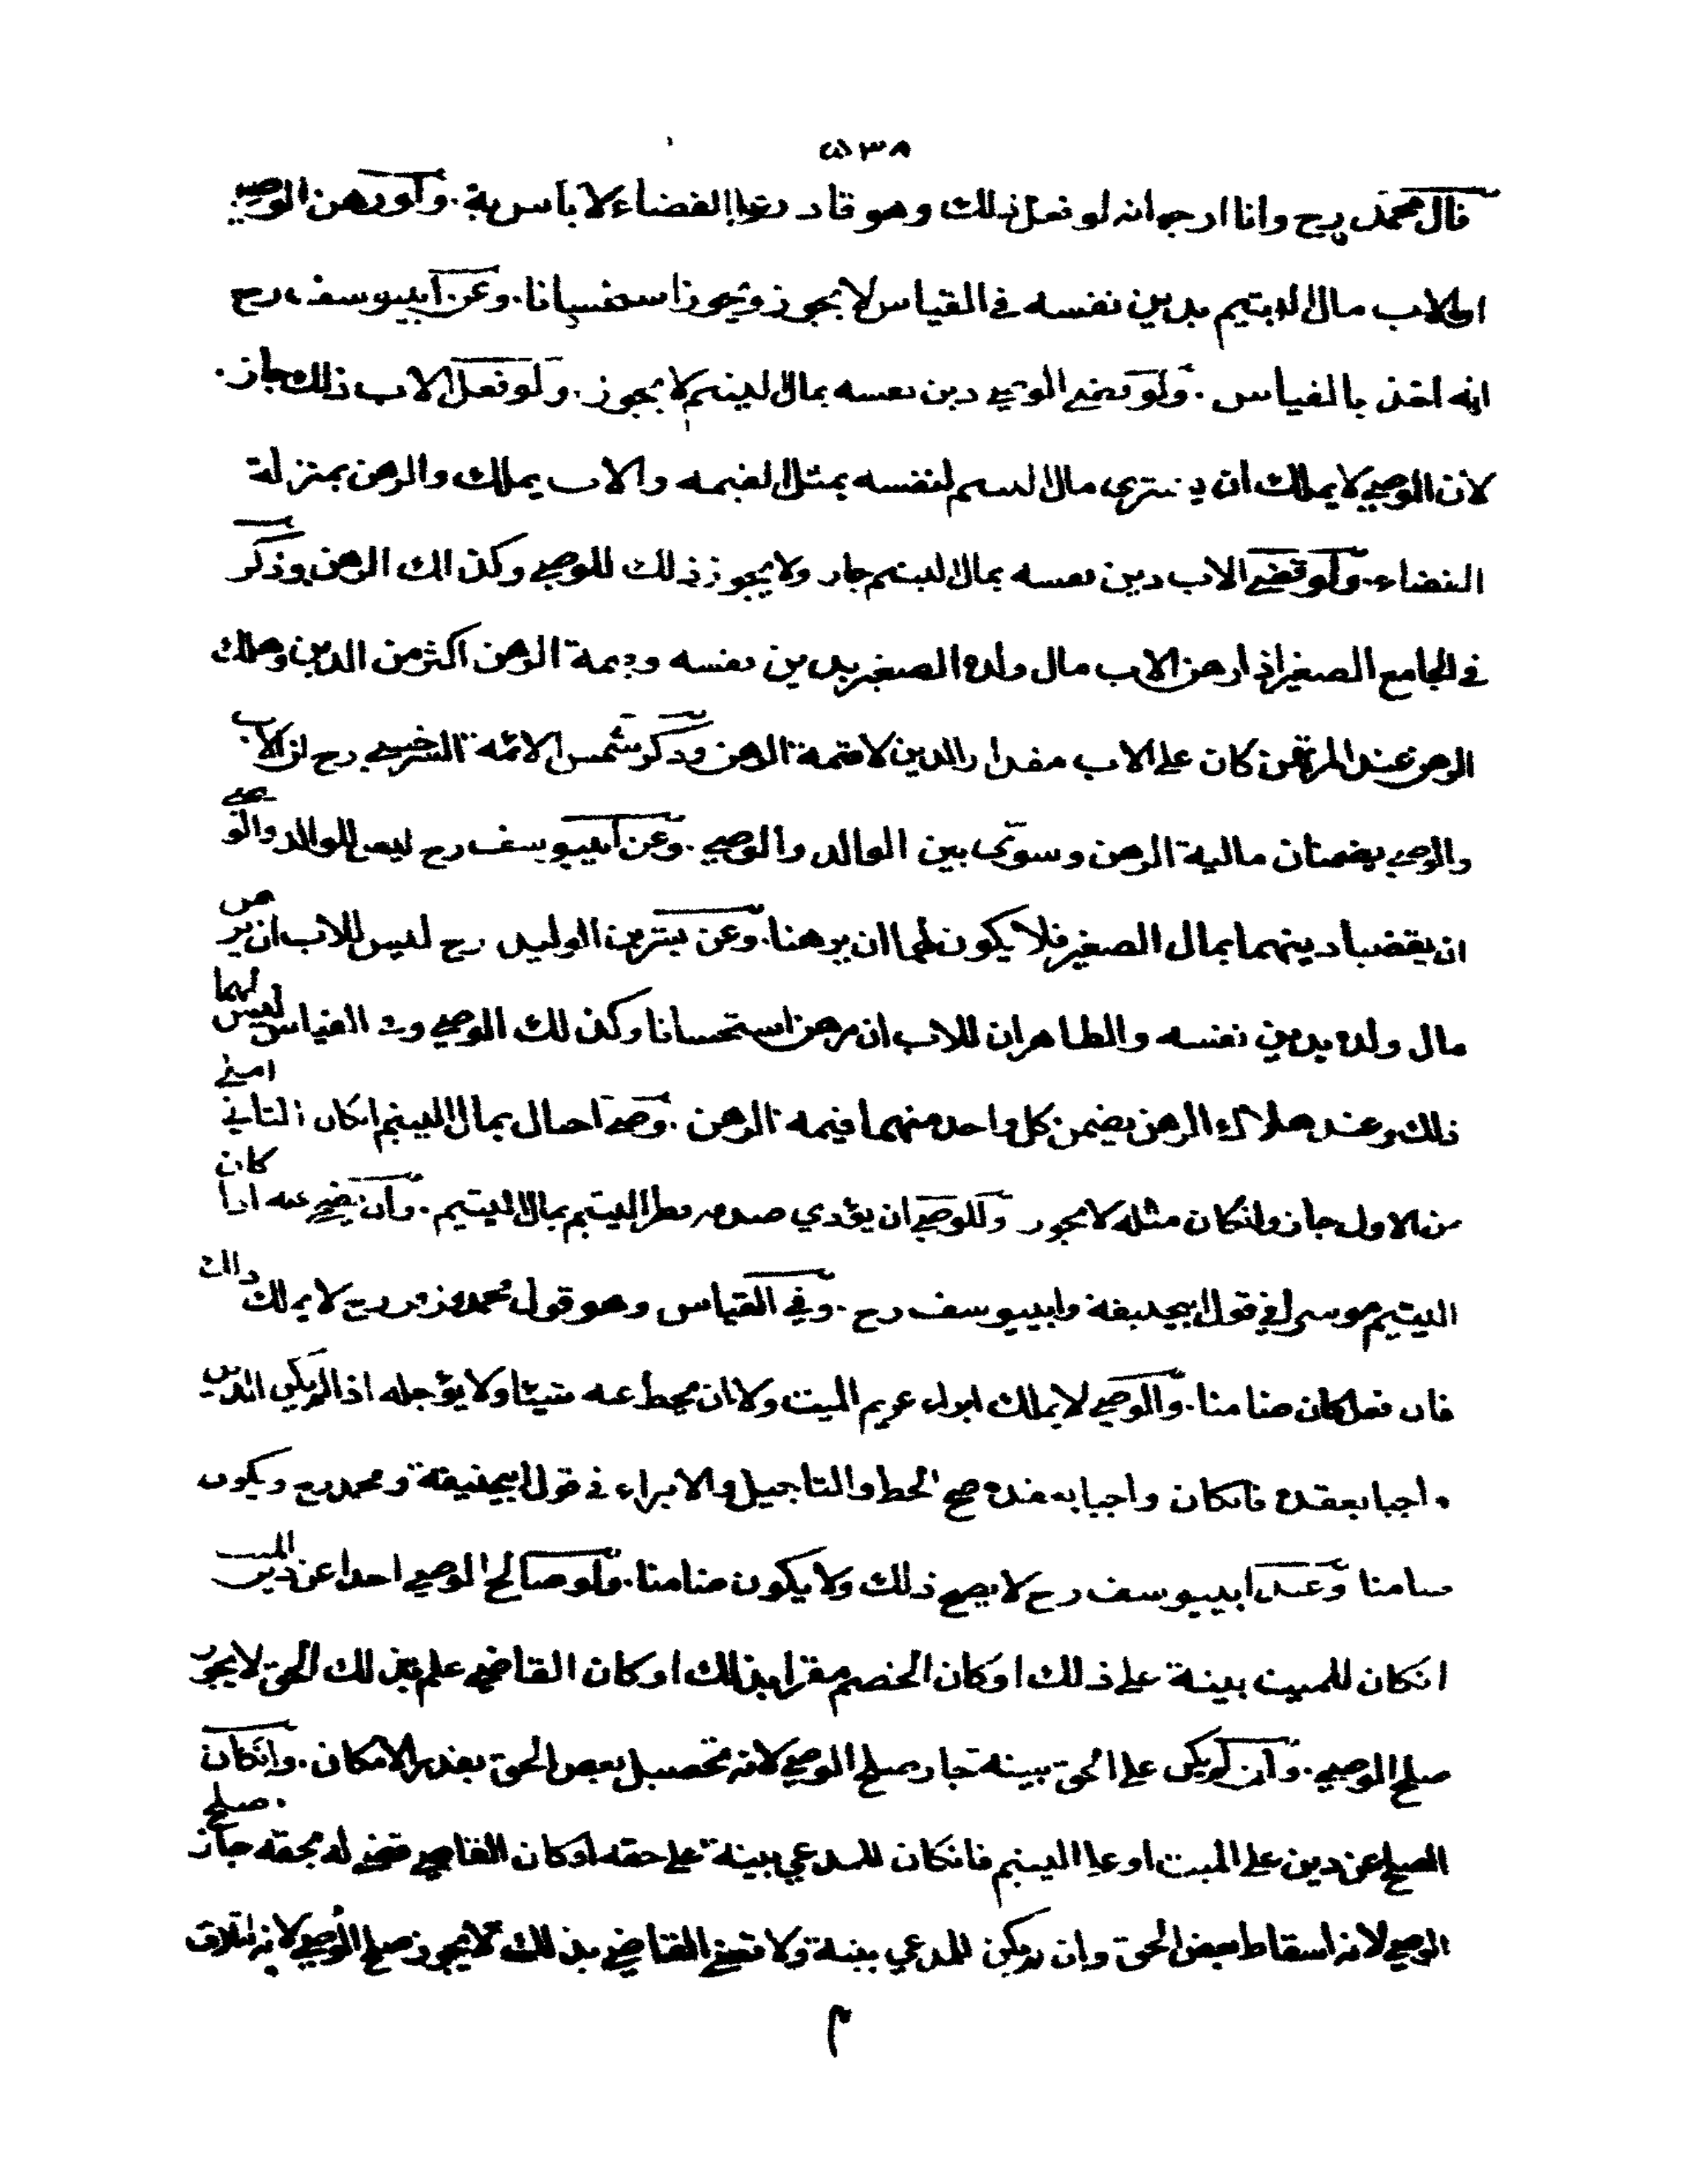 ٥٣٨
قال محمد رح وانا ارجو انه لو فعل ذلك وهو قادر على القضاء لا بأس به . ولو رهن الوصي
او الاب مال اليتيم بدين نفسه في القياس لا يجوز ويجوز استحسانا . وعن ابييوسف رح
انه اخذ بالقياس . ولو قضى الوصي دين نفسه بمال اليتيم لا يجوز . ولو فعل الاب ذلك جاز .
لان الوصي لا يملك ان يشتري مال اليتيم لنفسه بمثل القيمه والاب يملك والرهن بمنزلة
القضاء . ولو قضى الاب دين نفسه بمال اليتيم جاز ولا يجوز ذلك للوصي وكذالك الرهن وذكر
في الجامع الصغير اذا رهن الاب مال ولده الصغير بدين نفسه وقيمة الرهن اكثر من الدين وهلك
الرهن عند المرتهن كان على الاب مقدار الدين لا قيمة الرهن وذكر شمس الائمه السرخسي رح ان الاب
والوصي يضمنان مالية الرهن وسوّى بين الوالد والوصي . وعن ابييوسف رح ليس للوالد والوصي
ان يقضيا دينهما بمال الصغير فلا يكون لهما ان يرهنا . وعن بشر بن الوليد رح ليس للاب ان يرهن
مال ولده بدين نفسه والظاهر ان للاب ان يرهن استحسانا وكذلك الوصي وفي القياس ليس لهما
ذلك وعند هلاك الرهن يضمن كل واحد منهما قيمه الرهن . وصي احتال بمال اليتيم انكان الثاني املى
من الاول جاز وانكان مثله لا يجوز وللوصي ان يؤدي صدقه فطر اليتيم بمال اليتيم . وان يضحي عنه اذا كان
اليتيم موسرا في قول ابيحنيفة وابييوسف رح . وفي القياس وهو قول محمد وزفر رح لا يملك ذلك
فان فعل كان ضامنا . والوصي لا يملك ابراء غريم الميت ولا ان يحط عنه شيئا ولا يؤجله اذا لم يكن الدين
واجبا بعقده فانكان واجبا بعقده صح الحط والتاجيل والابراء في قول ابيحنيفة ومحمد رح ويكون
ضامنا وعند ابييوسف رح لا يصح ذلك ولا يكون ضامنا . ولو صالح الوصي احدا عن دين الميت
انكان للميت بينة على ذلك او كان الخصم مقرا بذلك او كان القاضي علم بذلك الحق لا يجوز
صلح الوصي . وان لم يكن على الحق بينة جاز صلح الوصي لانه تحصيل بعض الحق بقدر الامكان . وانكان
الصلح عن دين على الميت او على اليتيم فانكان للمدعي بينة على حقه او كان القاضي قضى له بحقه جاز صلح
الوصي لانه اسقاط بعض الحق وان لم يكن للمدعي بينة ولا قضى القاضي بذلك لا يجوز صلح الوصي لانه اتلاف
م